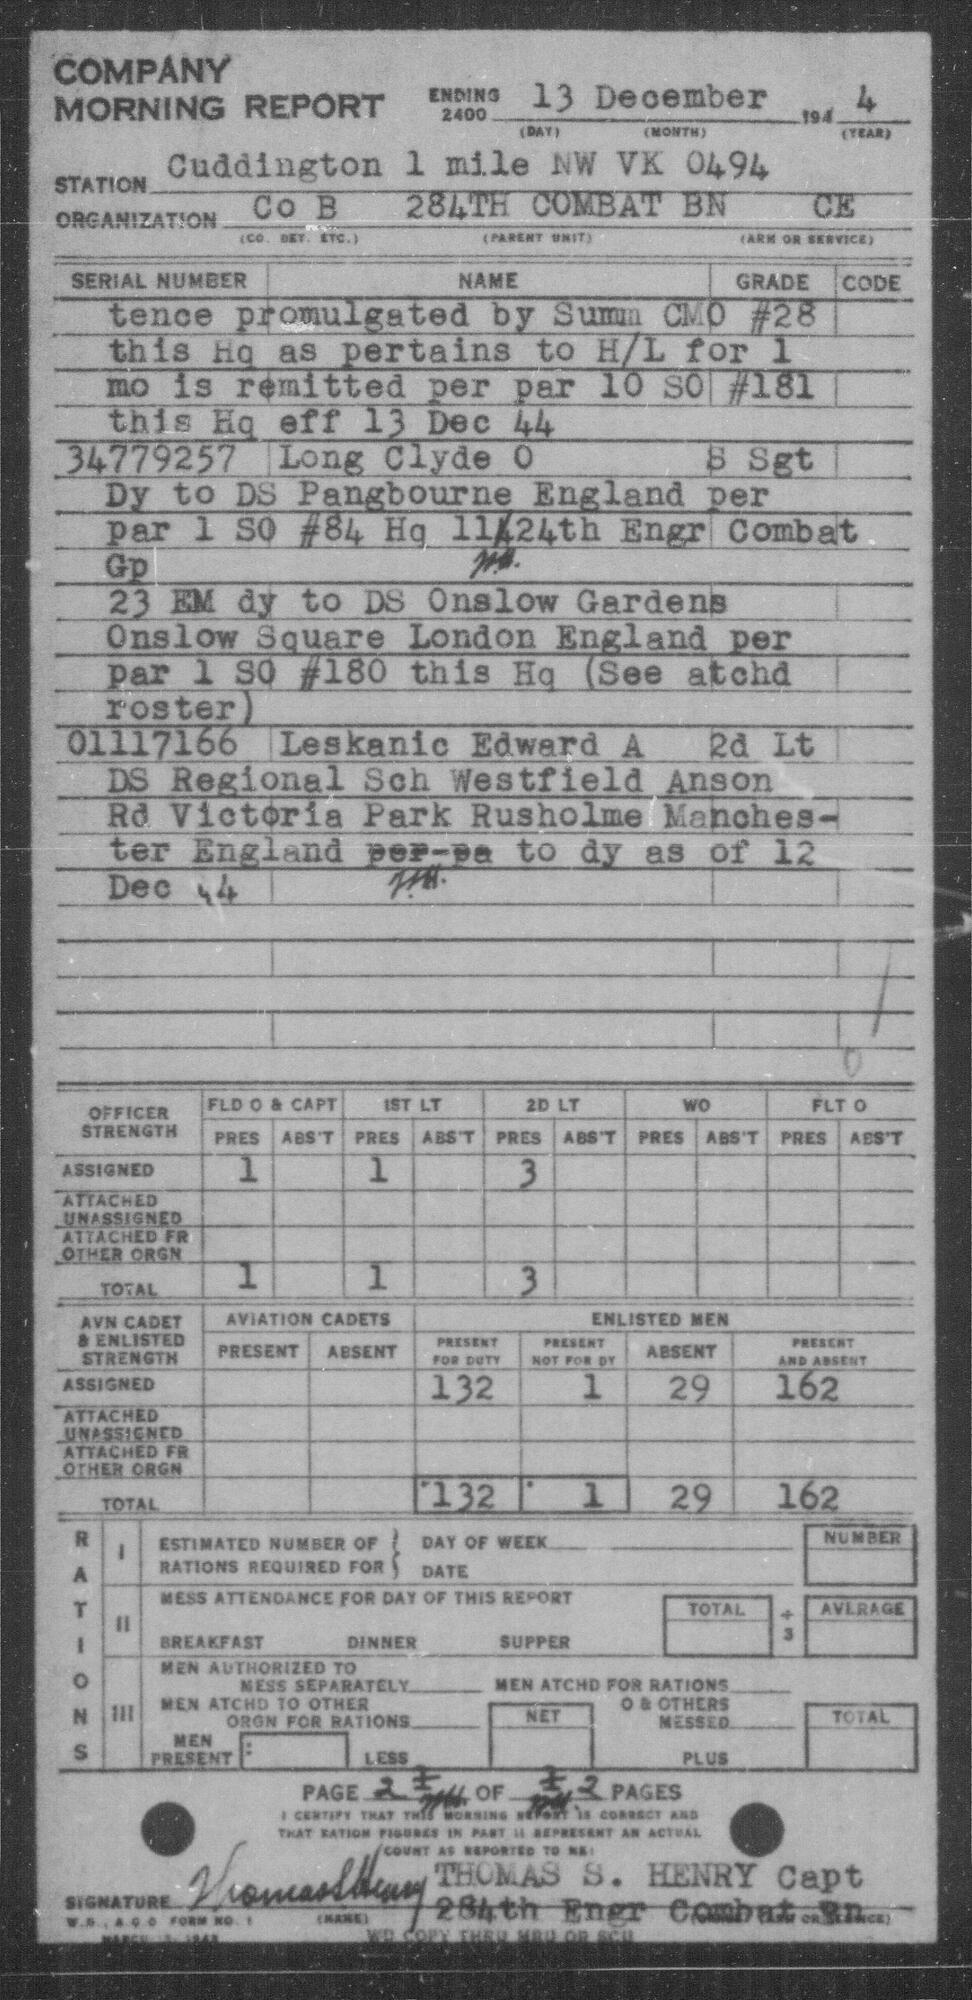 COMPANY
MORNING REPORT ENDING 2400 13 December 194 4
(DAY) (MONTH) (YEAR)
STATION Cuddington 1 mile NW VK 0494
ORGANIZATION Co B 284TH COMBAT BN CE
(CO. DET. ETC.) (PARENT UNIT) (ARM OR SERVICE)
SERIAL NUMBER NAME GRADE CODE
tence promulgated by Summ CMO #28
this Hq as pertains to H/L for 1
mo is remitted per par 10 SO #181
this Hq eff 13 Dec 44
34779257 Long Clyde O S Sgt
Dy to DS Pangbourne England per
par 1 SO #84 Hq 1124th Engr Combat
Gp
23 EM dy to DS Onslow Gardens
Onslow Square London England per
par 1 SO #180 this Hq (See atchd
roster)
01117166 Leskanic Edward A 2d Lt
DS Regional Sch Westfield Anson
Rd Victoria Park Rusholme Manches-
ter England per-pa to dy as of 12
Dec 44
OFFICER STRENGTH FLD O & CAPT 1ST LT 2D LT WO FLT O
PRES ABS'T PRES ABS'T PRES ABS'T PRES ABS'T PRES ABS'T
ASSIGNED 1 1 3
ATTACHED UNASSIGNED
ATTACHED FR OTHER ORGN
TOTAL 1 1 3
AVN CADET & ENLISTED STRENGTH AVIATION CADETS ENLISTED MEN
PRESENT ABSENT PRESENT FOR DUTY PRESENT NOT FOR DY ABSENT PRESENT AND ABSENT
ASSIGNED 132 1 29 162
ATTACHED UNASSIGNED
ATTACHED FR OTHER ORGN
TOTAL 132 1 29 162
RATIONS
I ESTIMATED NUMBER OF DAY OF WEEK NUMBER
RATIONS REQUIRED FOR DATE
II MESS ATTENDANCE FOR DAY OF THIS REPORT TOTAL ÷ 3 AVERAGE
BREAKFAST DINNER SUPPER
III MEN AUTHORIZED TO
MESS SEPARATELY MEN ATCHD FOR RATIONS
MEN ATCHD TO OTHER
ORGN FOR RATIONS NET O & OTHERS MESSED TOTAL
MEN PRESENT LESS PLUS
PAGE 2 OF 2 PAGES
I CERTIFY THAT THIS MORNING REPORT IS CORRECT AND
THAT RATION FIGURES IN PART II REPRESENT AN ACTUAL
COUNT AS REPORTED TO ME:
THOMAS S. HENRY Capt
SIGNATURE Thomas S Henry
284th Engr Combat Bn
W.D., A.G.O. FORM NO. 1 (NAME)
MARCH 1943
WD COPY THRU MRU OR SCU